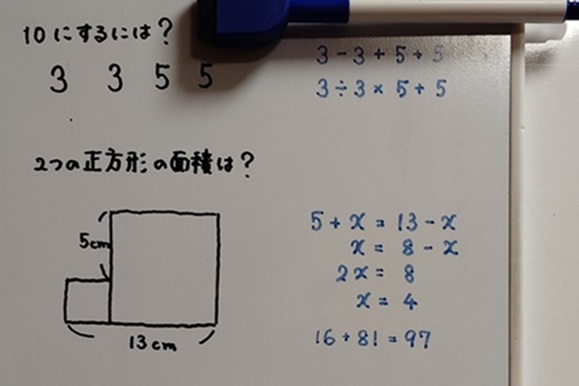 10にするには?
3 3 5 5
3-3+5+5
3÷3×5+5
2つの正方形の面積は?
5cm
13cm
5+x=13-x
x=8-x
2x=8
x=4
16+81=97